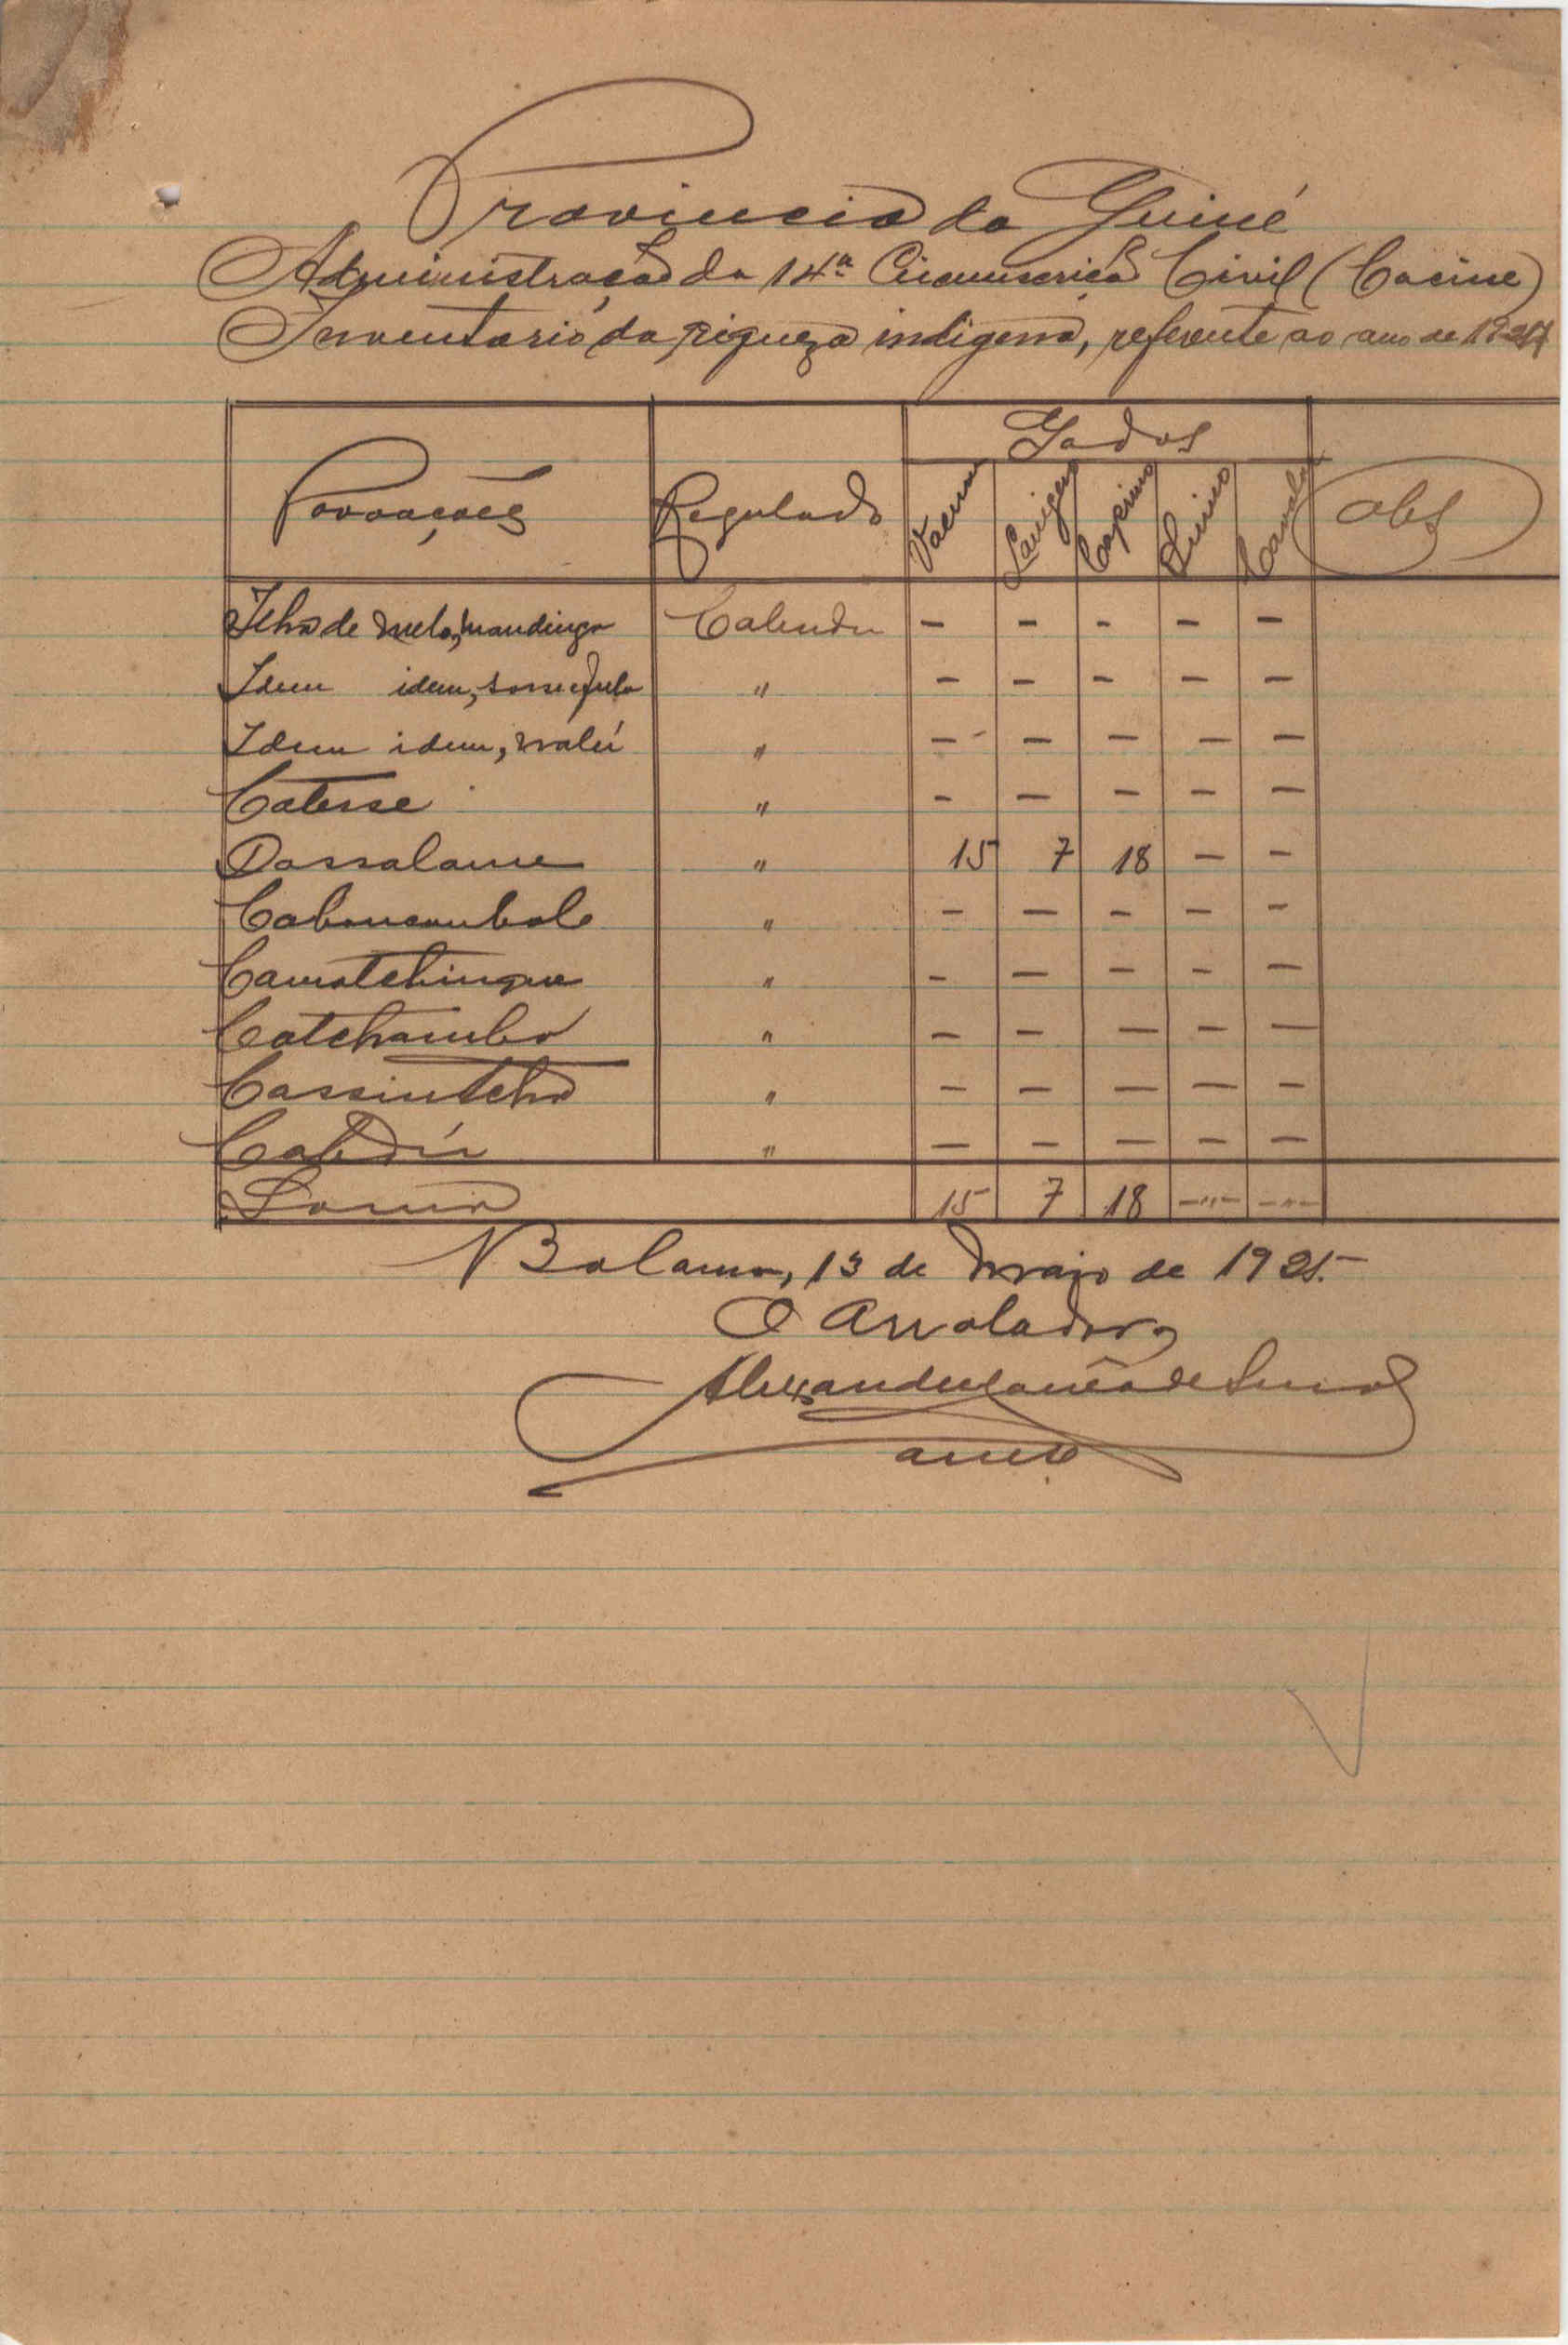 Provincia da Guiné
Administração da 14ª Circunscrição Civil (Cacine)
Inventario da riqueza indigena, referente ao ano de 1924
Povoações Regulado Gados Obs
Vacum Lanigero Caprino Suino Cavalar
Ilha de Melo, mandinga Cabendu - - - - -
Idem idem, sosso e fula " - - - - -
Idem idem, nalú " - - - - -
Catesse " - - - - -
Dassalame " 15 7 18 - -
Cabonsambale " - - - - -
Camatchingue " - - - - -
Catchambo " - - - - -
Cassintcha " - - - - -
Cabedú " - - - - -
Soma 15 7 18 -"- -"-
Bolama, 13 de Maio de 1925.
O Arrolador,